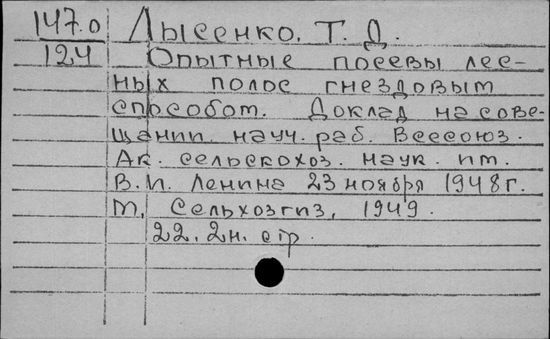 147.0 Лысенко. Т. Д.
124 Опытные посевы лес-
ных полос гнездовым
способом. Доклад на сове-
щании науч. раб. Всесоюз.
Ак. сельскохоз. наук. им.
В. И. Ленина 23 ноября 1948 г.
М., Сельхозгиз, 1949.
22. 2н. стр.